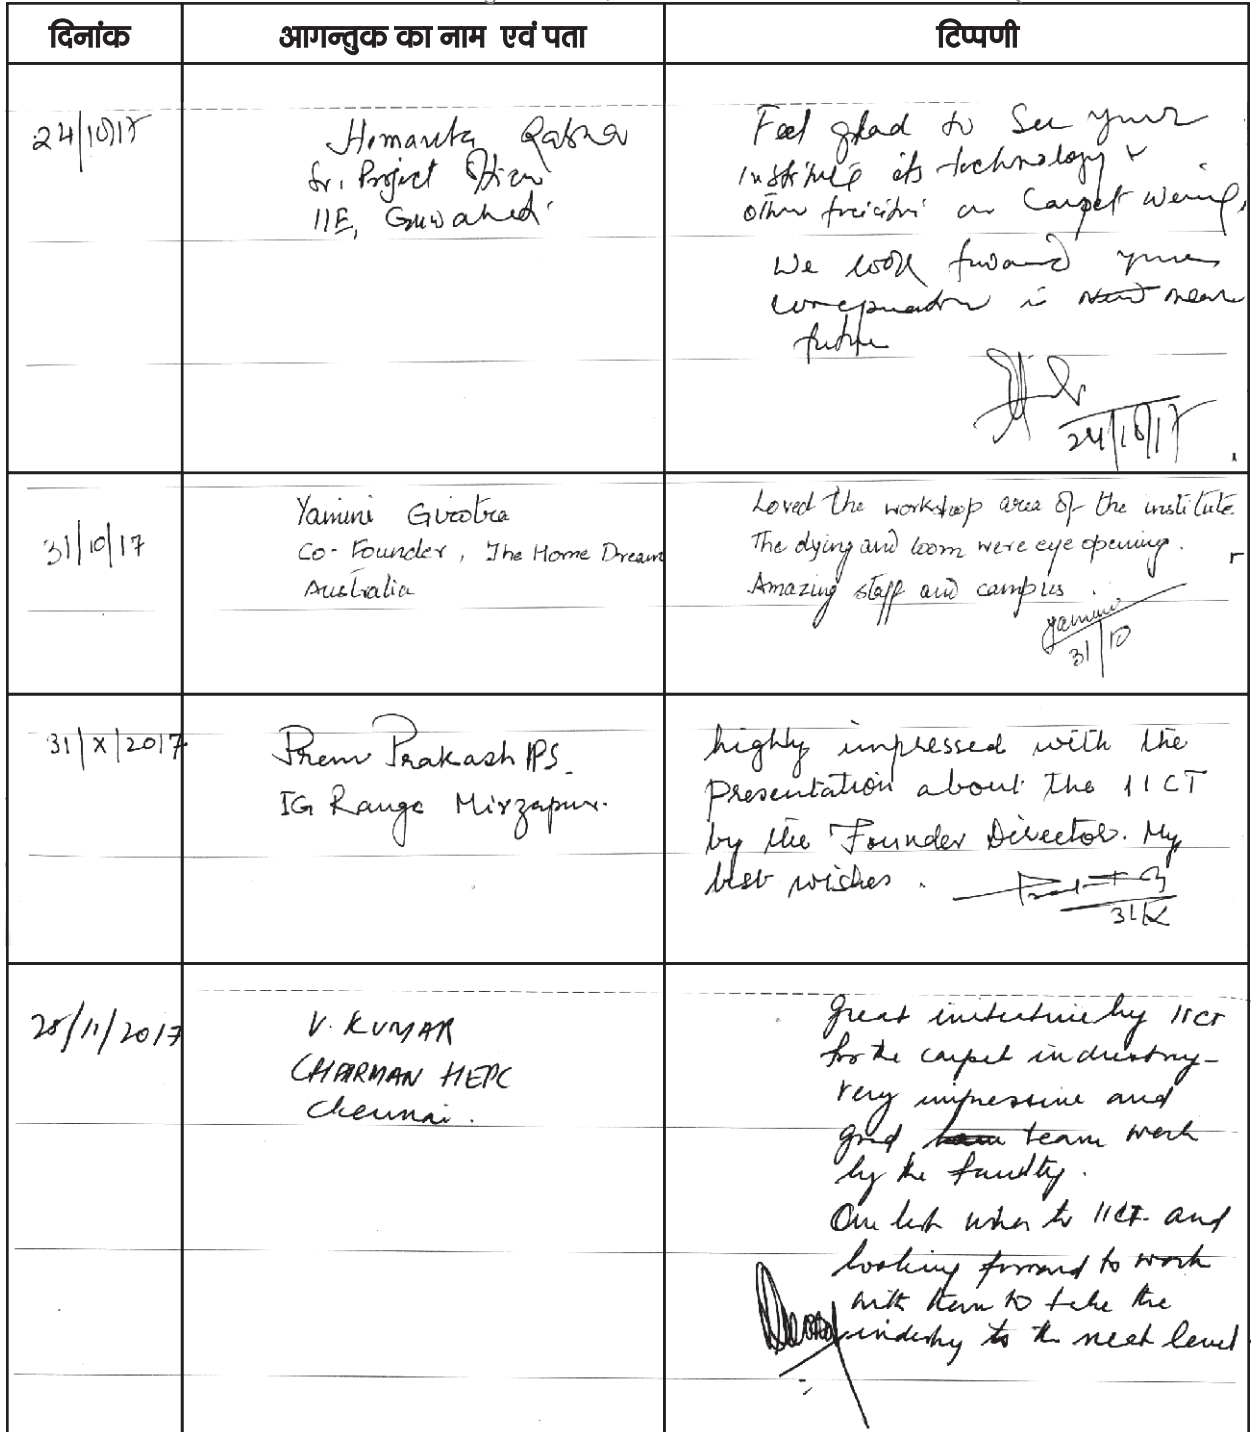 दिनांक आगन्तुक का नाम एवं पता टिप्पणी
24/10/17
Hemanta
Sr. Project
IIE, Guwahati
Feel glad to see your
institute its technology &
other on Carpet
We look forward your
in near
future
24/10/17
31/10/17
Yamini Girotra
Co-Founder, The Home Dream
Australia
Loved the workshop area of the institute.
The dying and loom were eye opening.
Amazing staff and campus.
Yamini
31/10
31/X/2017
Prem Prakash IPS.
IG Range Mirzapur.
highly impressed with the
Presentation about the IICT
by the Founder Director. My
best wishes.
31/X
28/11/2017
V. KUMAR
CHAIRMAN HEPC
Chennai.
Great by IICT
for the carpet industry-
very impressive and
good team work
by the faculty.
Our best wishes to IICT and
looking forward to work
with them to take the
industry to the next level